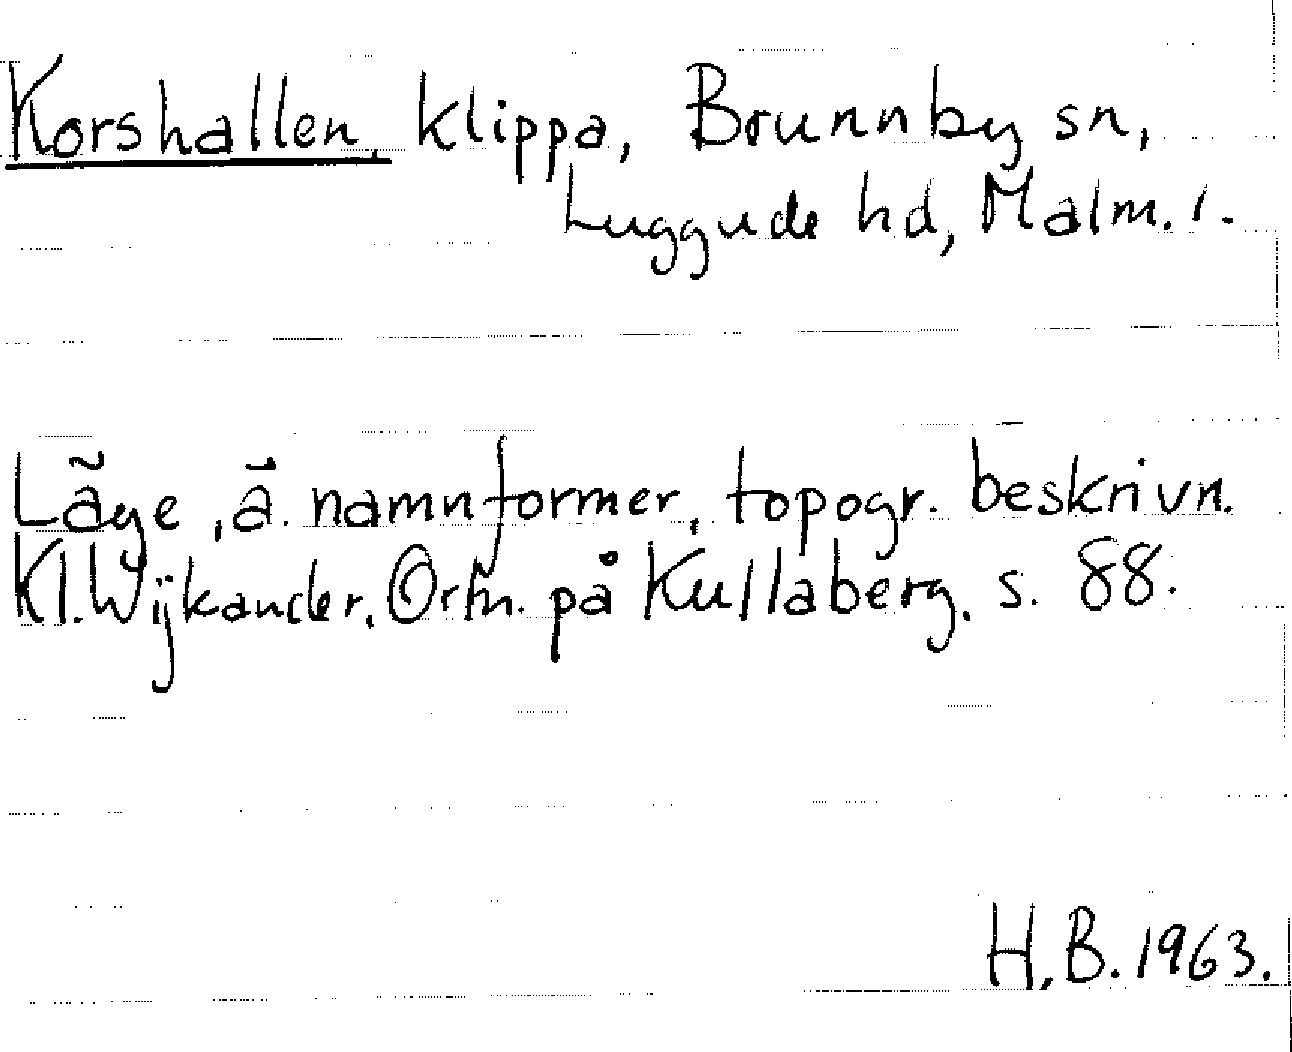 Korshallen, klippa, Brunnby sn,
Luggude hd, Malm. l.
Läge, ä. namnformer, topogr. beskrivn.
Kl. Wijkander, Ortn. på Kullaberg. s. 88.
H.B. 1963.